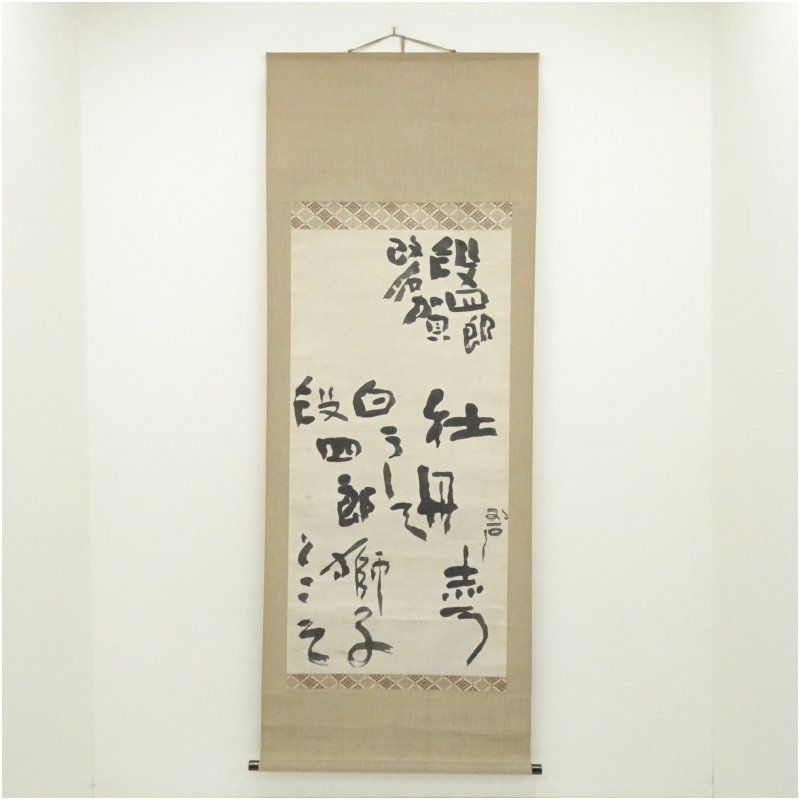 段四郎
改名賀
牡丹
寿
白うして
獅子
段四郎
とこそ